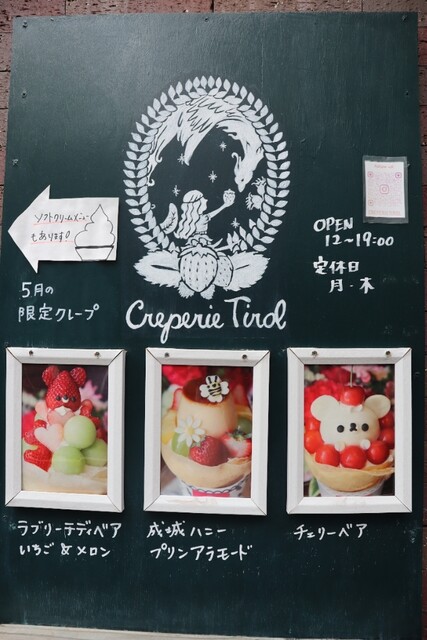 ソフトクリームメニュー
もあります!
OPEN
12〜19:00
定休日
月・木
5月の
限定クレープ
Creperie Tirol
ラブリーテディベア
いちご&メロン
成城ハニー
プリンアラモード
チェリーベア